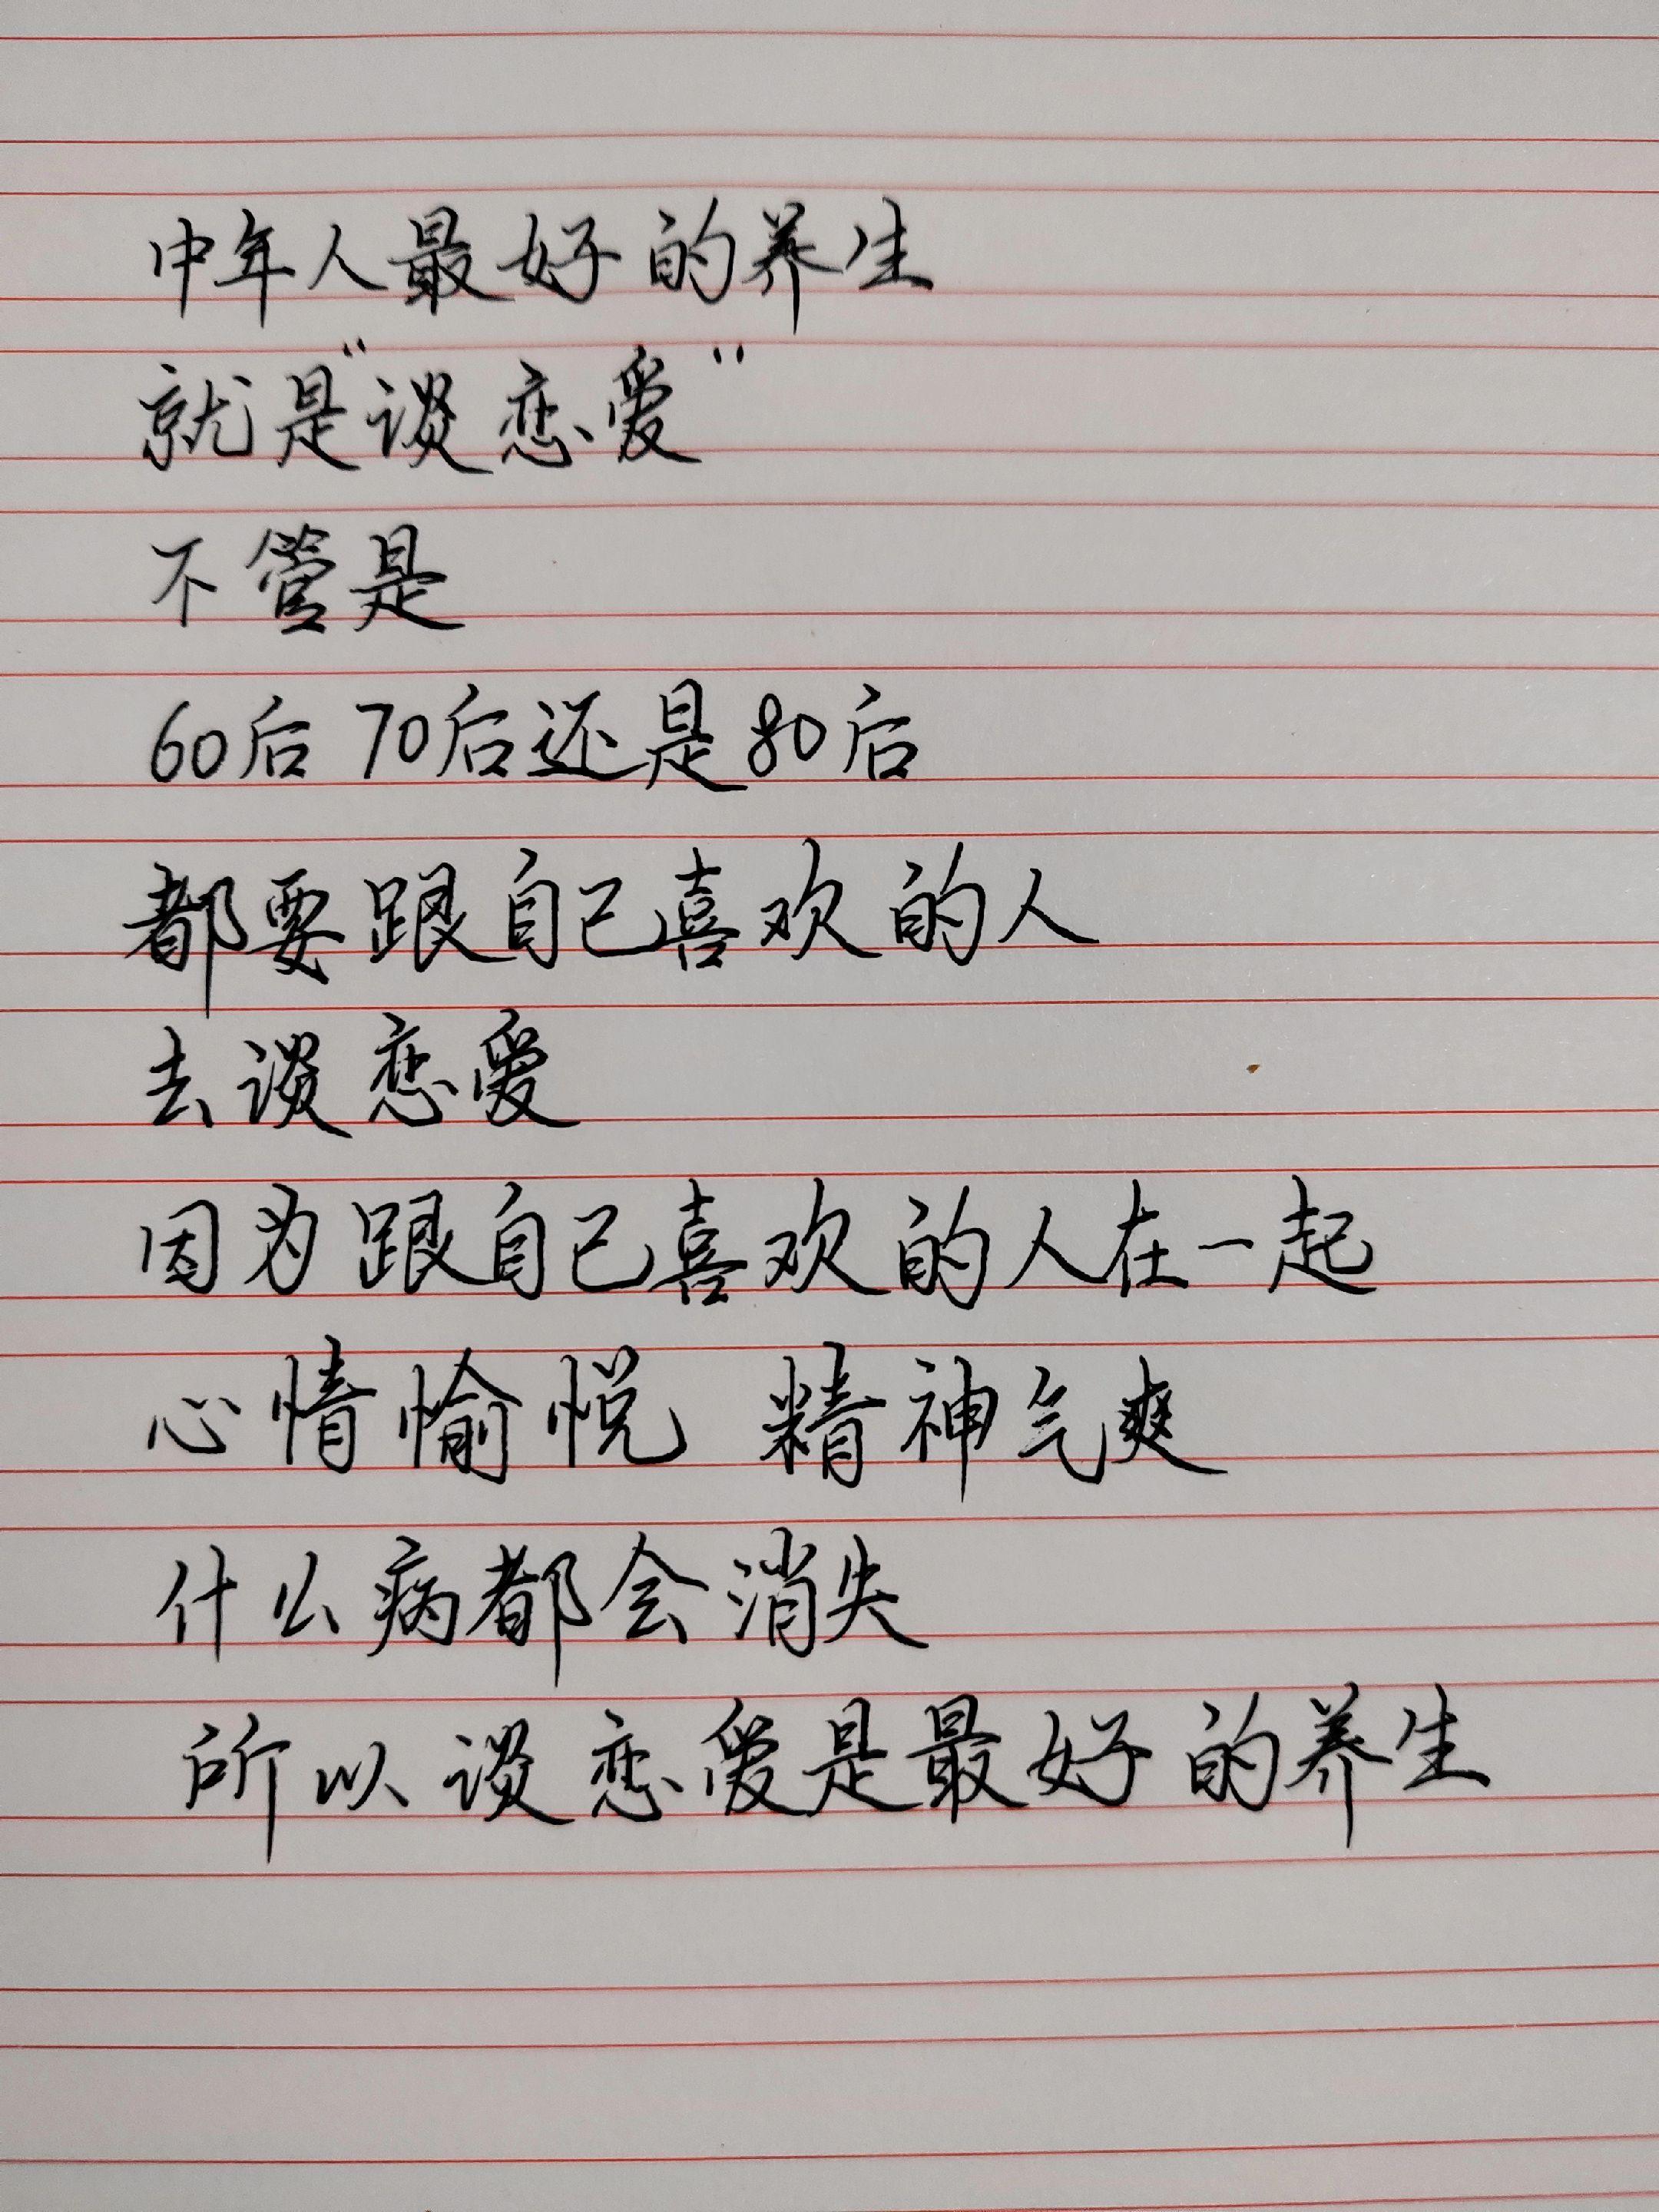 中年人最好的养生
就是“谈恋爱”
不管是
60后 70后还是80后
都要跟自己喜欢的人
去谈恋爱
因为跟自己喜欢的人在一起
心情愉悦 精神气爽
什么病都会消失
所以谈恋爱是最好的养生